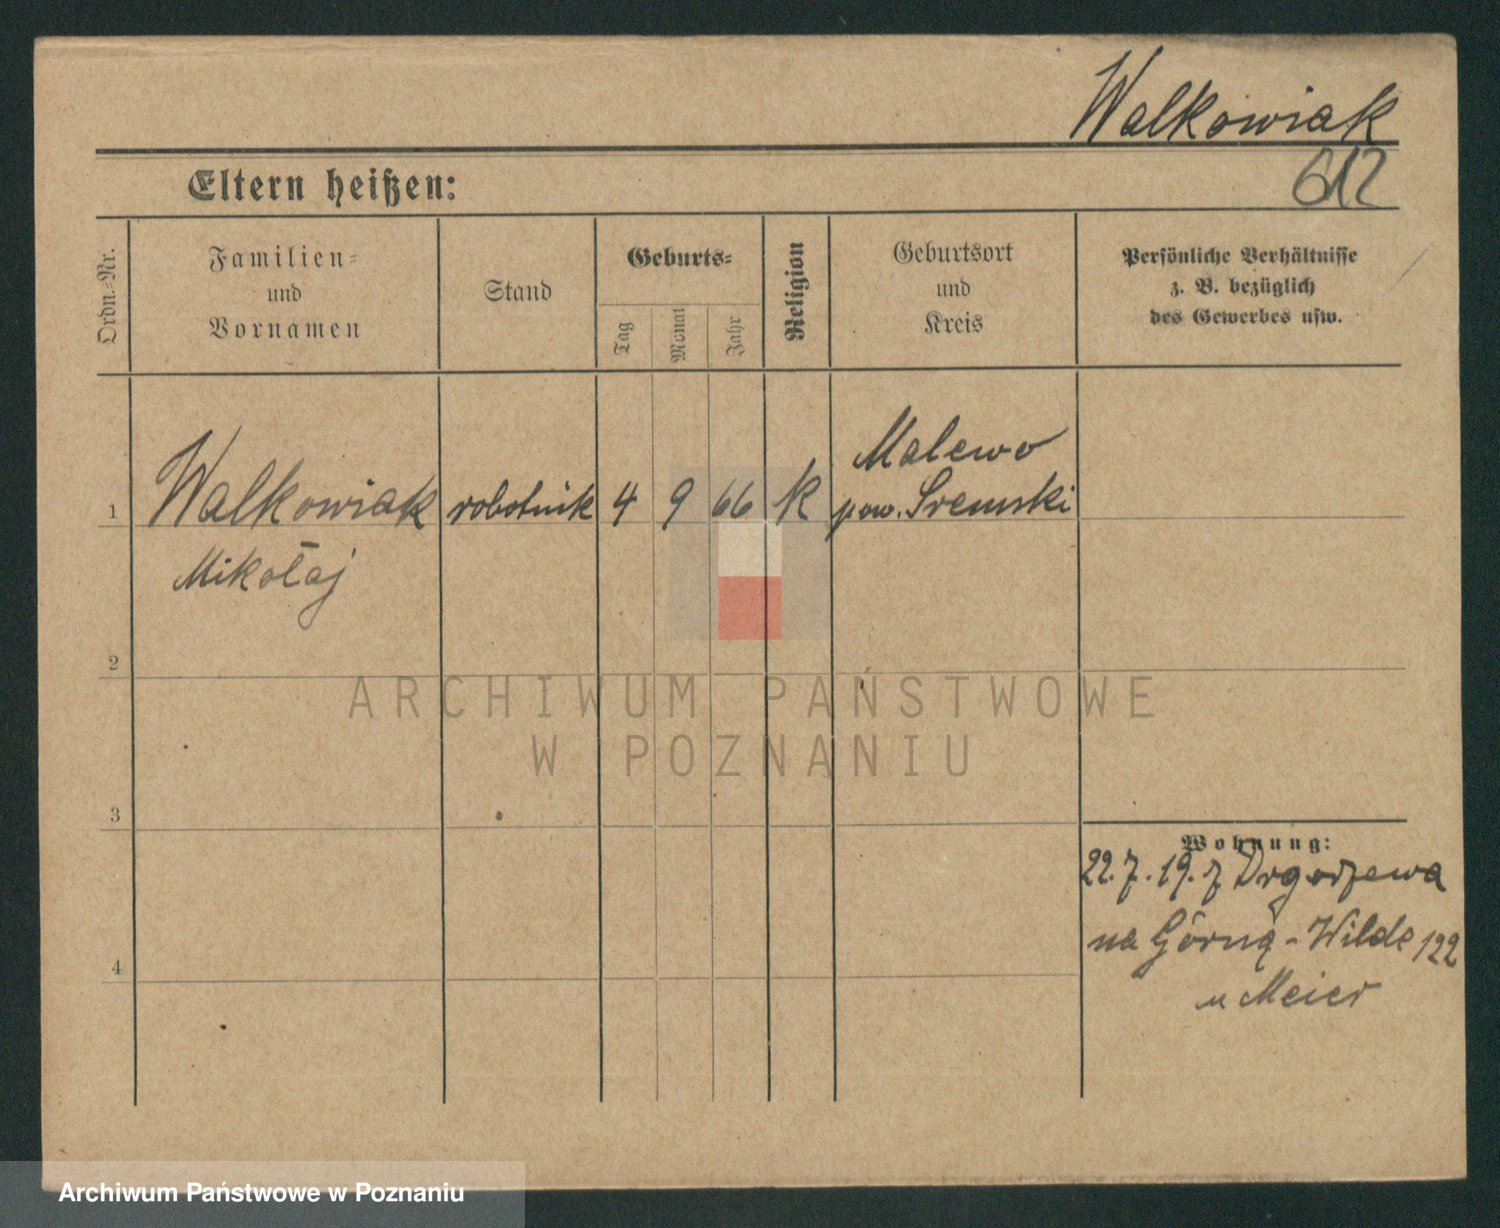 Walkowiak
612
Eltern heißen:
Ordn.-Nr.
Familien-
und
Vornamen
Stand
Geburts-
Tag
Monat
Jahr
Religion
Geburtsort
und
Kreis
Persönliche Verhältnisse
z. B. bezüglich
des Gewerbes usw.
Malewo
1 Walkowiak robotnik 4 9 66 K pow. Śremski
Mikołaj
2
ARCHIWUM PAŃSTWOWE
W POZNANIU
3
Wohnung:
22.7.19. z Drgorzewa
na Górną-Wildę 122
4
u Meier
Archiwum Państwowe w Poznaniu